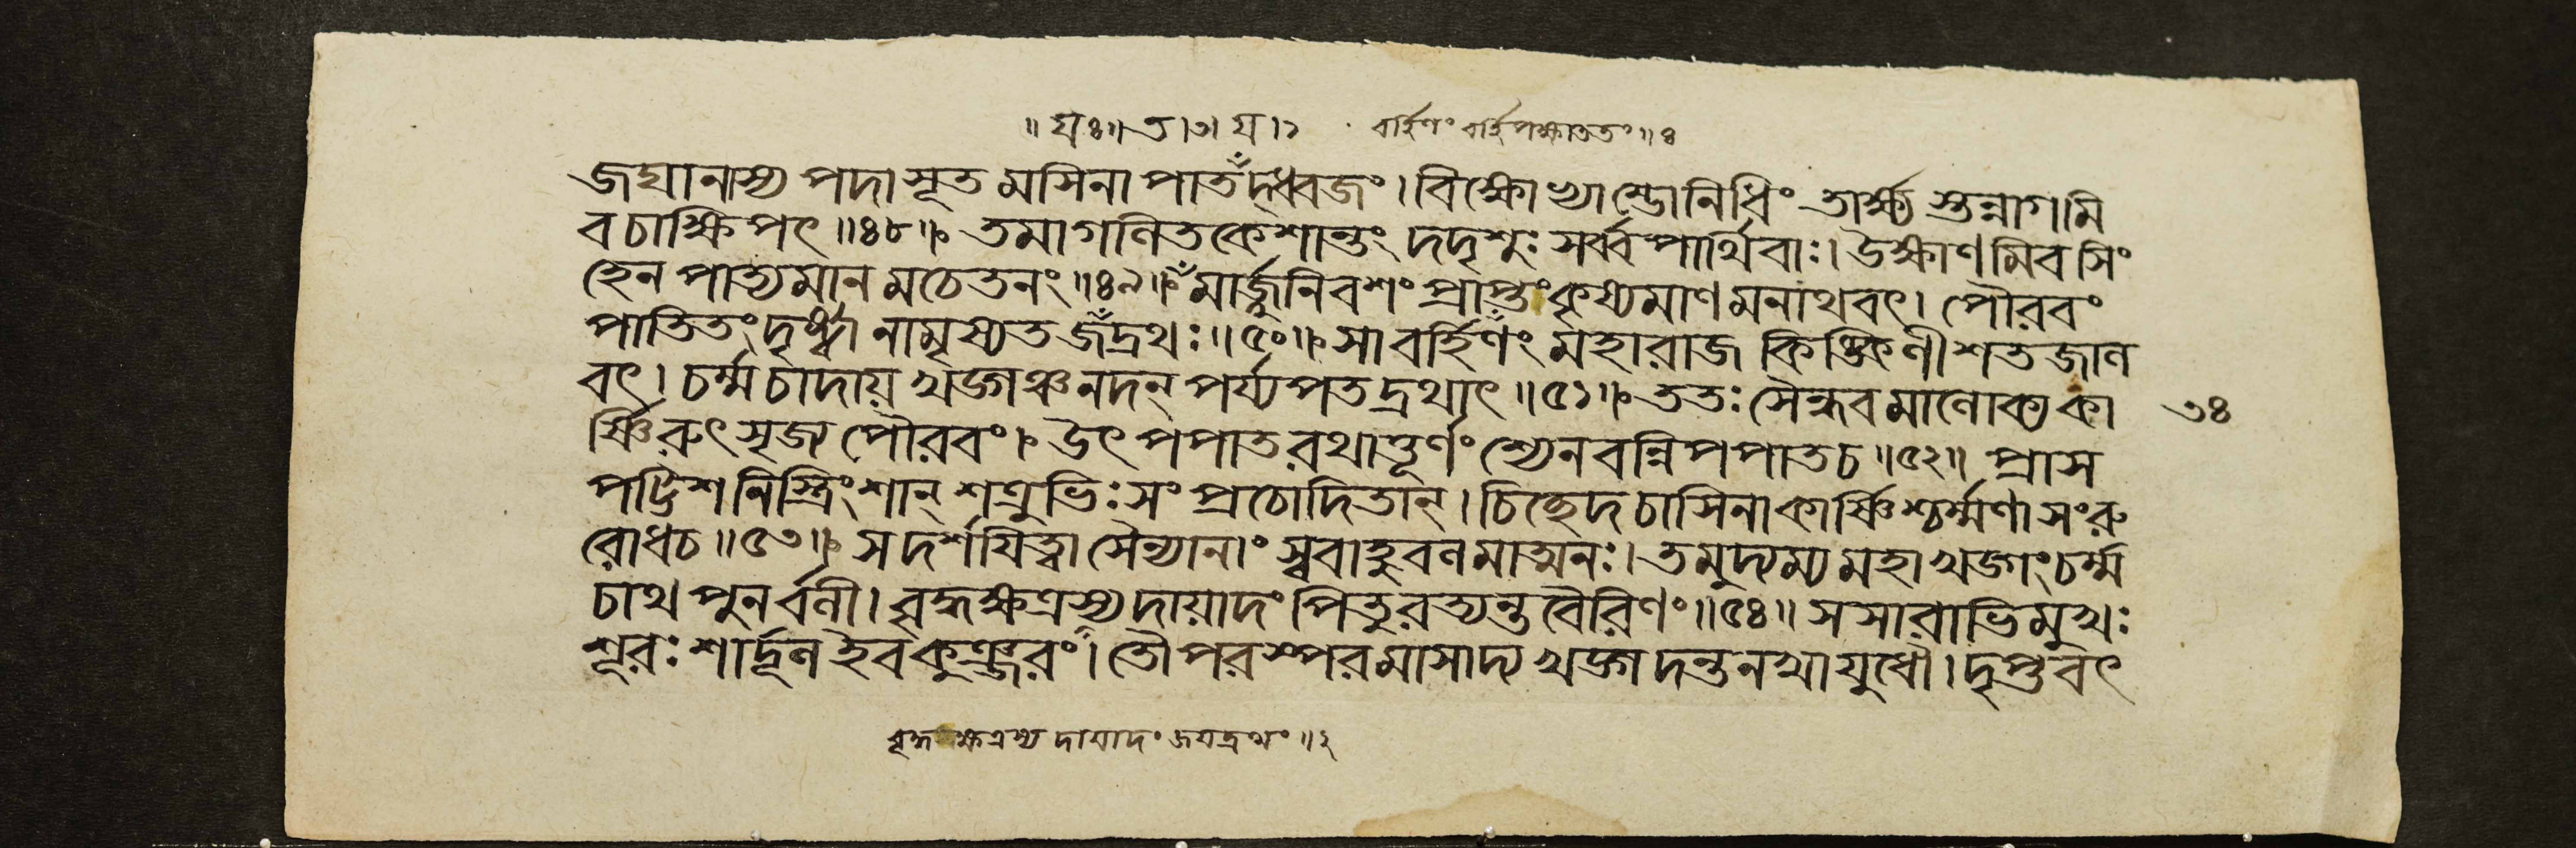 ॥ য়ঃ ॥ ৩ । ৩ । য় । ১ বর্হিণং বর্হিপক্ষাততং ॥ ৪
জঘানাস্য পদা সূত মসিনা পাতঁদ্ধ্বজং । বিক্ষোভ্যাম্ভোনিধিং তার্ক্ষ্য স্তন্নাগমি
ব চাক্ষিপৎ ॥ ৪৮ ॥ তমাগলিতকেশান্তং দদৃশুঃ সর্ব্বপার্থিবাঃ । উক্ষাণমিব সিং
হেন পাত্যমান মচেতনং ॥ ৪৯ ॥ মার্জ্জুনিবশং প্রাপ্তং কৃষ্যমাণ মনাথবৎ । পৌরবং
পাতিতং দৃষ্ট্বা নামৃষ্যত জঁদ্রথঃ ॥ ৫০ ॥ সা বর্হিণং মহারাজ কিঙ্কিণীশতজাল
বৎ । চর্ম্ম চাদায় খড়্গঞ্চ নদন্ পর্য্যপতদ্রথাৎ ॥ ৫১ ॥ ততঃ সৈন্ধবমালোক্য কা
র্ষ্ণিরুৎসৃজ্য পৌরবং । উৎপপাত রথাত্তূর্ণং শ্যেনবন্নিপপাত চ ॥ ৫২ ॥ প্রাস
পট্টিশনিস্ত্রিংশান্ শত্রুভিঃ সংপ্রচোদিতান্ । চিচ্ছেদ চাসিনা কার্ষ্ণিশ্চর্ম্মণা সংরু
রোধ চ ॥ ৫৩ ॥ স দর্শযিত্বা সৈন্যানাং স্ববাহুবলমাত্মনঃ । তমুদ্যম্য মহাখড়্গং চর্ম্ম
চাথ পুনর্বলী । বৃদ্ধক্ষত্রস্য দায়াদং পিতুরত্যন্তবৈরিণং ॥ ৫৪ ॥ সসারাভিমুখঃ
শূরঃ শার্দ্দূল ইব কুঞ্জরং । তৌ পরস্পরমাসাদ্য খড়্গদন্তনখায়ুধৌ । দৃপ্তবৎ
৩৪
বৃদ্ধক্ষত্রস্য দায়াদং জয়দ্রথং ॥ ২